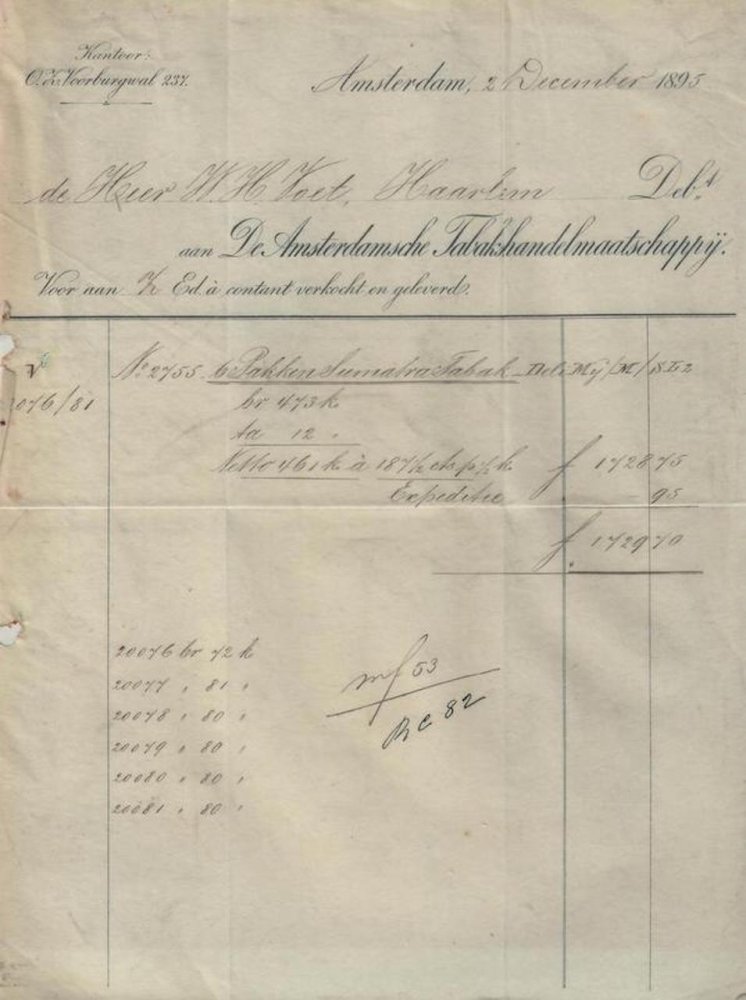 Kantoor:
O.Z. Voorburgwal 237.
Amsterdam, 2 December 1895
de Heer W. H. Voet, Haarlem Debt.
aan De Amsterdamsche Tabakshandelmaatschappij.
Voor aan Z Ed. à contant verkocht en geleverd.
No 2755 6 Pakken Sumatra Tabak Deli Mij/M/
076/81 br 473 k
Ta 12 "
Netto 461 k à 187½ cts p ½ k f 1728 75
Expeditie " 95
f 1729 70
20076 br 72 k
20077 " 81 "
20078 " 80 "
20079 " 80 "
20080 " 80 "
20081 " 80 "
mf 53
82